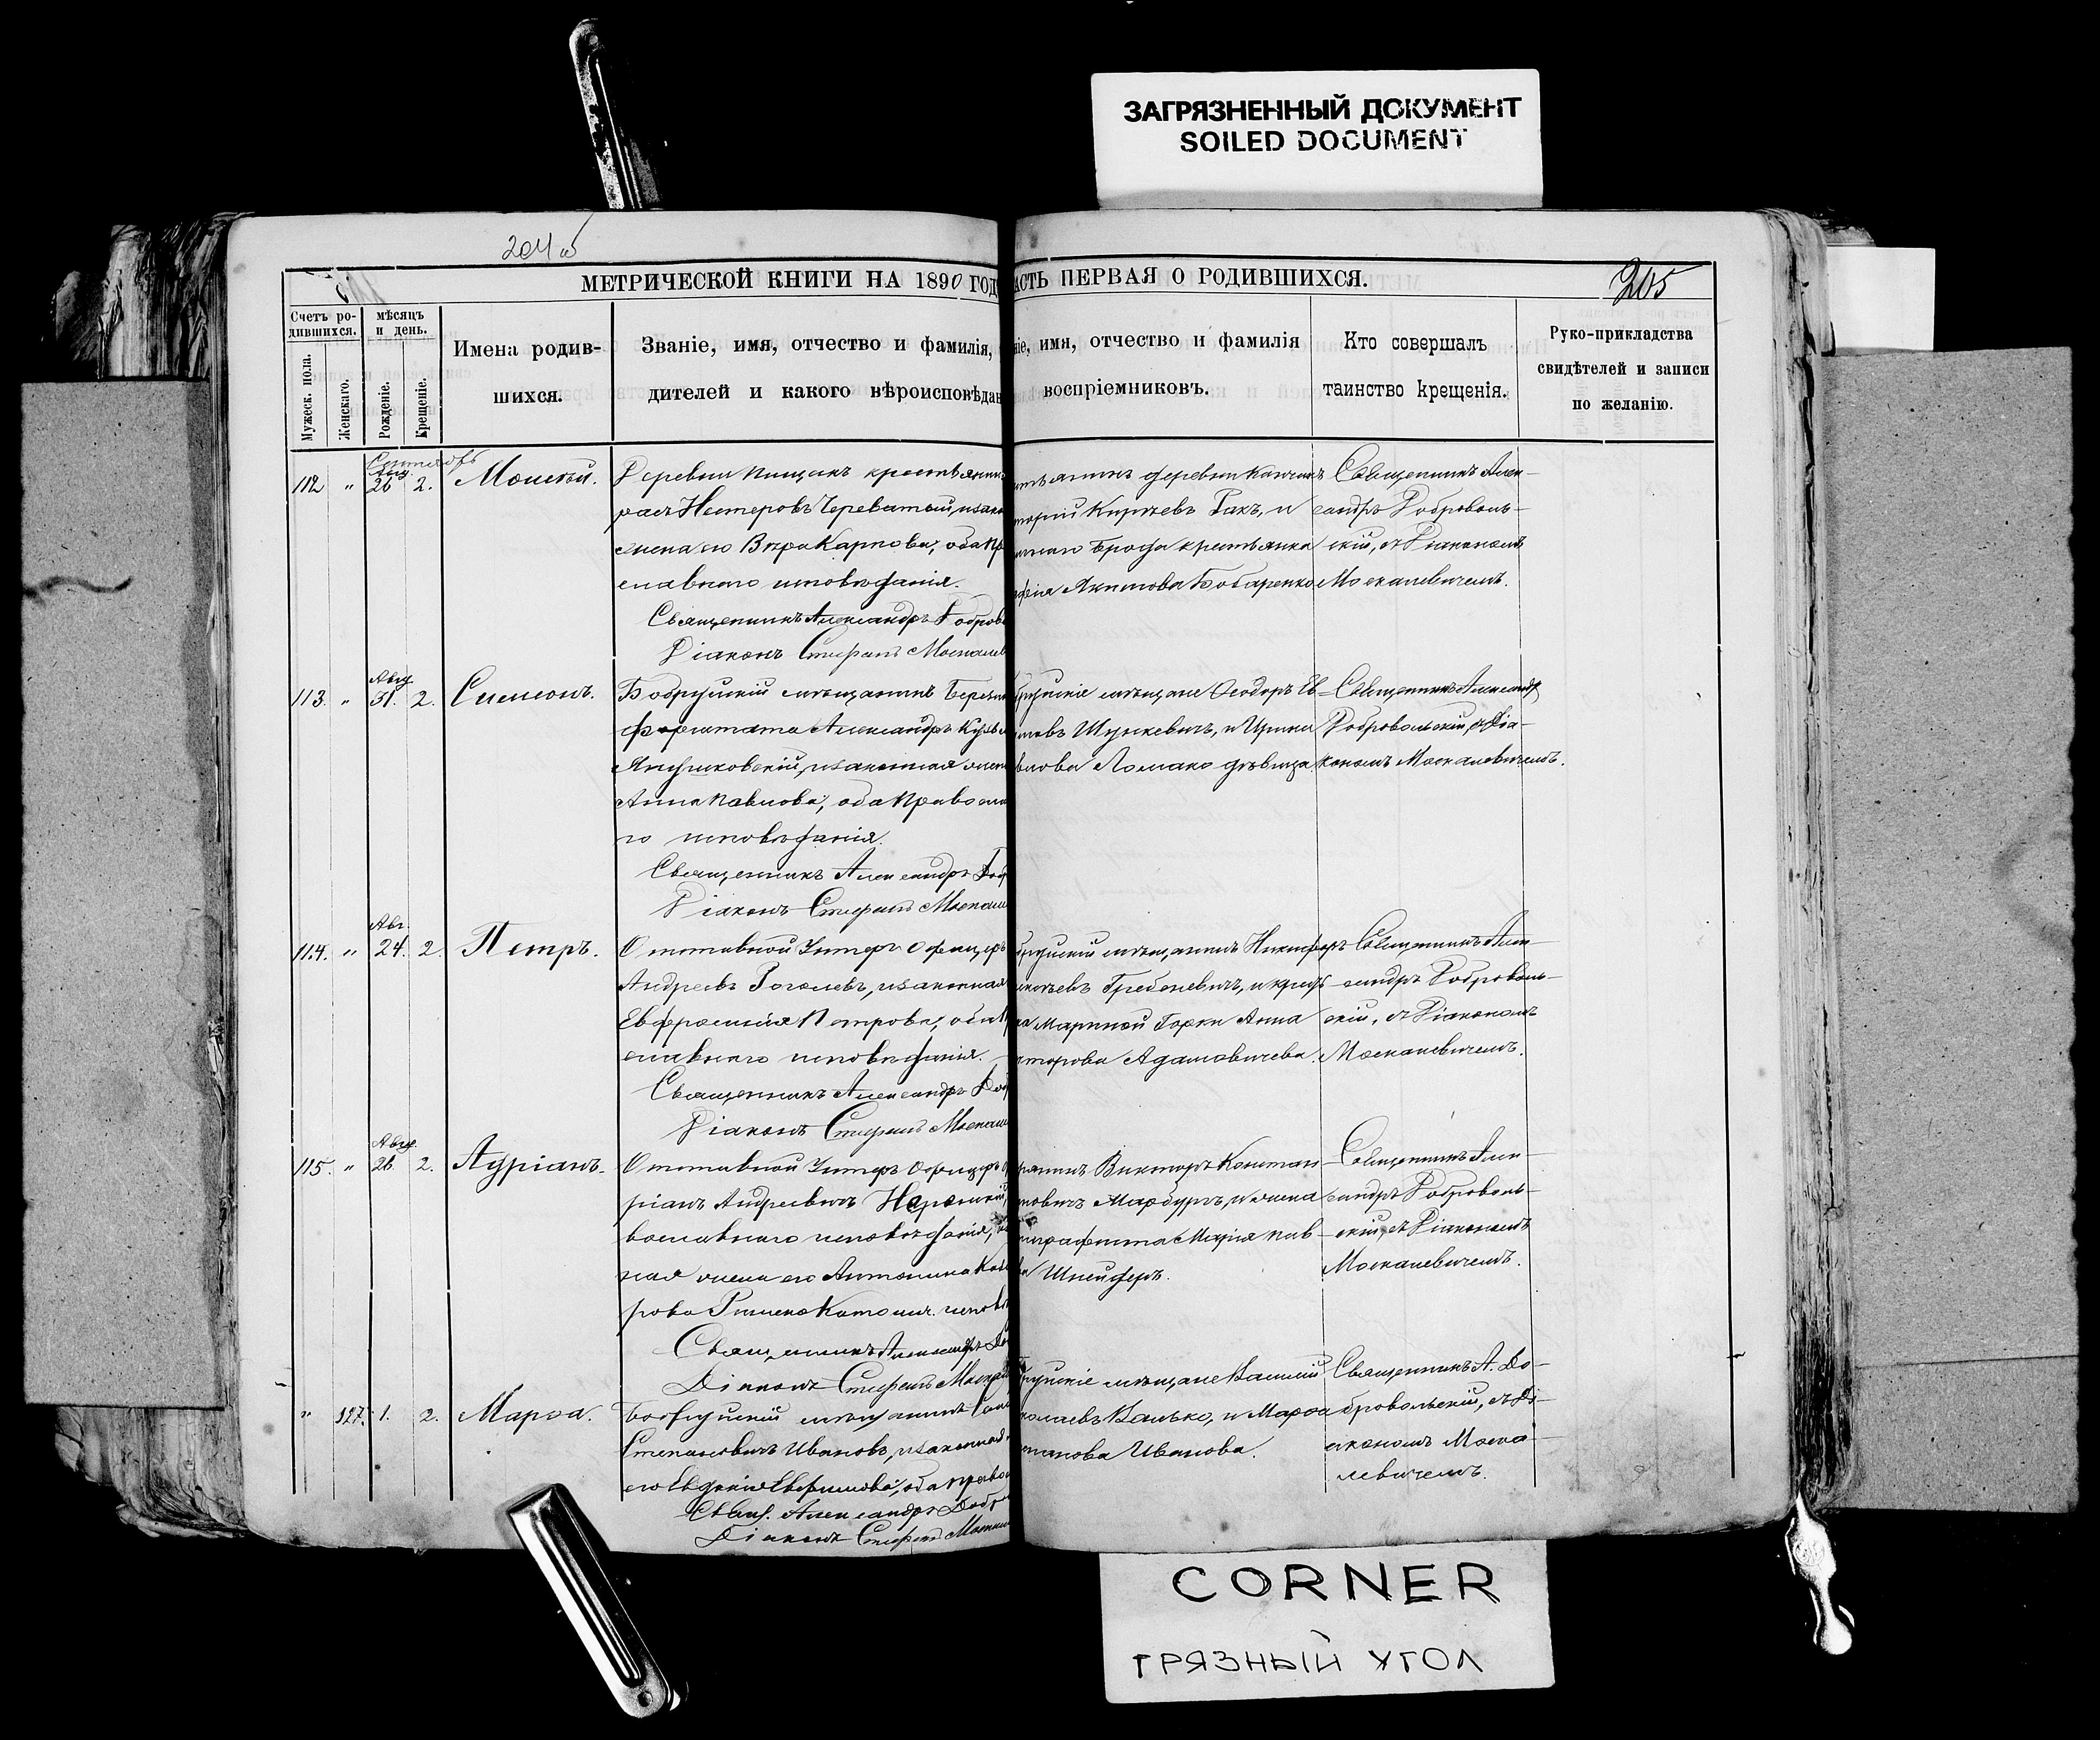 ЗАГРЯЗНЕННЫЙ ДОКУМЕНТ
SOILED DOCUMENT
204 об
205
МЕТРИЧЕСКОЙ КНИГИ НА 1890 ГОД
АСТЬ ПЕРВАЯ О РОДИВШИХСЯ.
Счетъ ро-
дившихся.
Мужеск. пола.
Женскаго.
мѣсяцъ
и день.
Рожденіе.
Крещеніе.
Имена родив-
шихся.
Званіе, имя, отчество и фамилія,
дителей и какого вѣроисповѣдан
ніе, имя, отчество и фамилія
воспріемниковъ.
Кто совершалъ
таинство крещенія.
Руко-прикладства
свидѣтелей и записи
по желанію.
Сентябрь
Авг.
112 " 26 2. Моисей.
Деревни Пищакъ крестьянин
Нестеровъ Череватый, и зако
жена его Вѣра Карпова, оба пр
славнаго исповѣданія.
Священникъ Александръ Доброво
Діаконъ Стефанъ Москалев
деревни
Кириевъ Гакъ, и
Брода крестьянка
Якимова Бобаренко
Священникъ Алек-
сандръ Доброволь-
скій, съ Діакономъ
Москалевичемъ.
Авг.
113. " 31. 2. Симеонъ.
Бобруйскій мѣщанинъ Березин
форштата Александръ Кузьм
Янушковскій, и законная жен
Анна Павлова, оба Правосла
го исповѣданія.
Священникъ Александръ Доб
Діаконъ Стефанъ Москале
бруйскіе мѣщане Ѳеодоръ Ев-
Шункевичъ, и Ирина
Ломако дѣвица.
Священникъ Александръ
Добровольскій, съ Діа-
кономъ Москалевичемъ.
Авг.
114. " 24. 2. Петръ.
Отставной Унтеръ Офицеръ
Андреевъ Гоголевъ, и законная
Евфросинія Петрова, оба пр
славнаго исповѣданія.
Священникъ Александръ Доб
Діаконъ Стефанъ Москале
бруйскій мѣщанинъ Никифоръ
Гребеневичъ, и
Марьиной Горки Анна
кторова Адамовичева.
Священникъ Алек-
сандръ Доброволь-
скій, съ Діакономъ
Москалевичемъ.
Авг.
115. " 26 2. Адріанъ.
Отставной Унтеръ Офицеръ
ріанъ Андреевичъ
вославнаго исповѣданія,
ная жена его Антонина
рова Римско Католич. испов
Священникъ Александръ До
Діаконъ Стефанъ Москал
Викторъ Констан-
новичъ Марбургъ, и жена
играфиста Марія Пав-
ва Шнейдеръ.
Священникъ Алек-
сандръ Доброволь-
скій, съ Діакономъ
Москалевичемъ.
" 127. 1. 2. Марѳа.
Бобруйскій мѣщанинъ
Степановичъ Ивановъ, и законная
его Евдокія Ефимова, оба право
Свящ. Александръ Добро
Діаконъ Стефанъ Москал
бруйскіе мѣщане Василій
колаевъ Валько, и Марѳа
епанова Иванова.
Священникъ А. До-
бровольскій, съ Ді-
акономъ Моска-
левичемъ.
CORNER
ГРЯЗНЫЙ УГОЛ